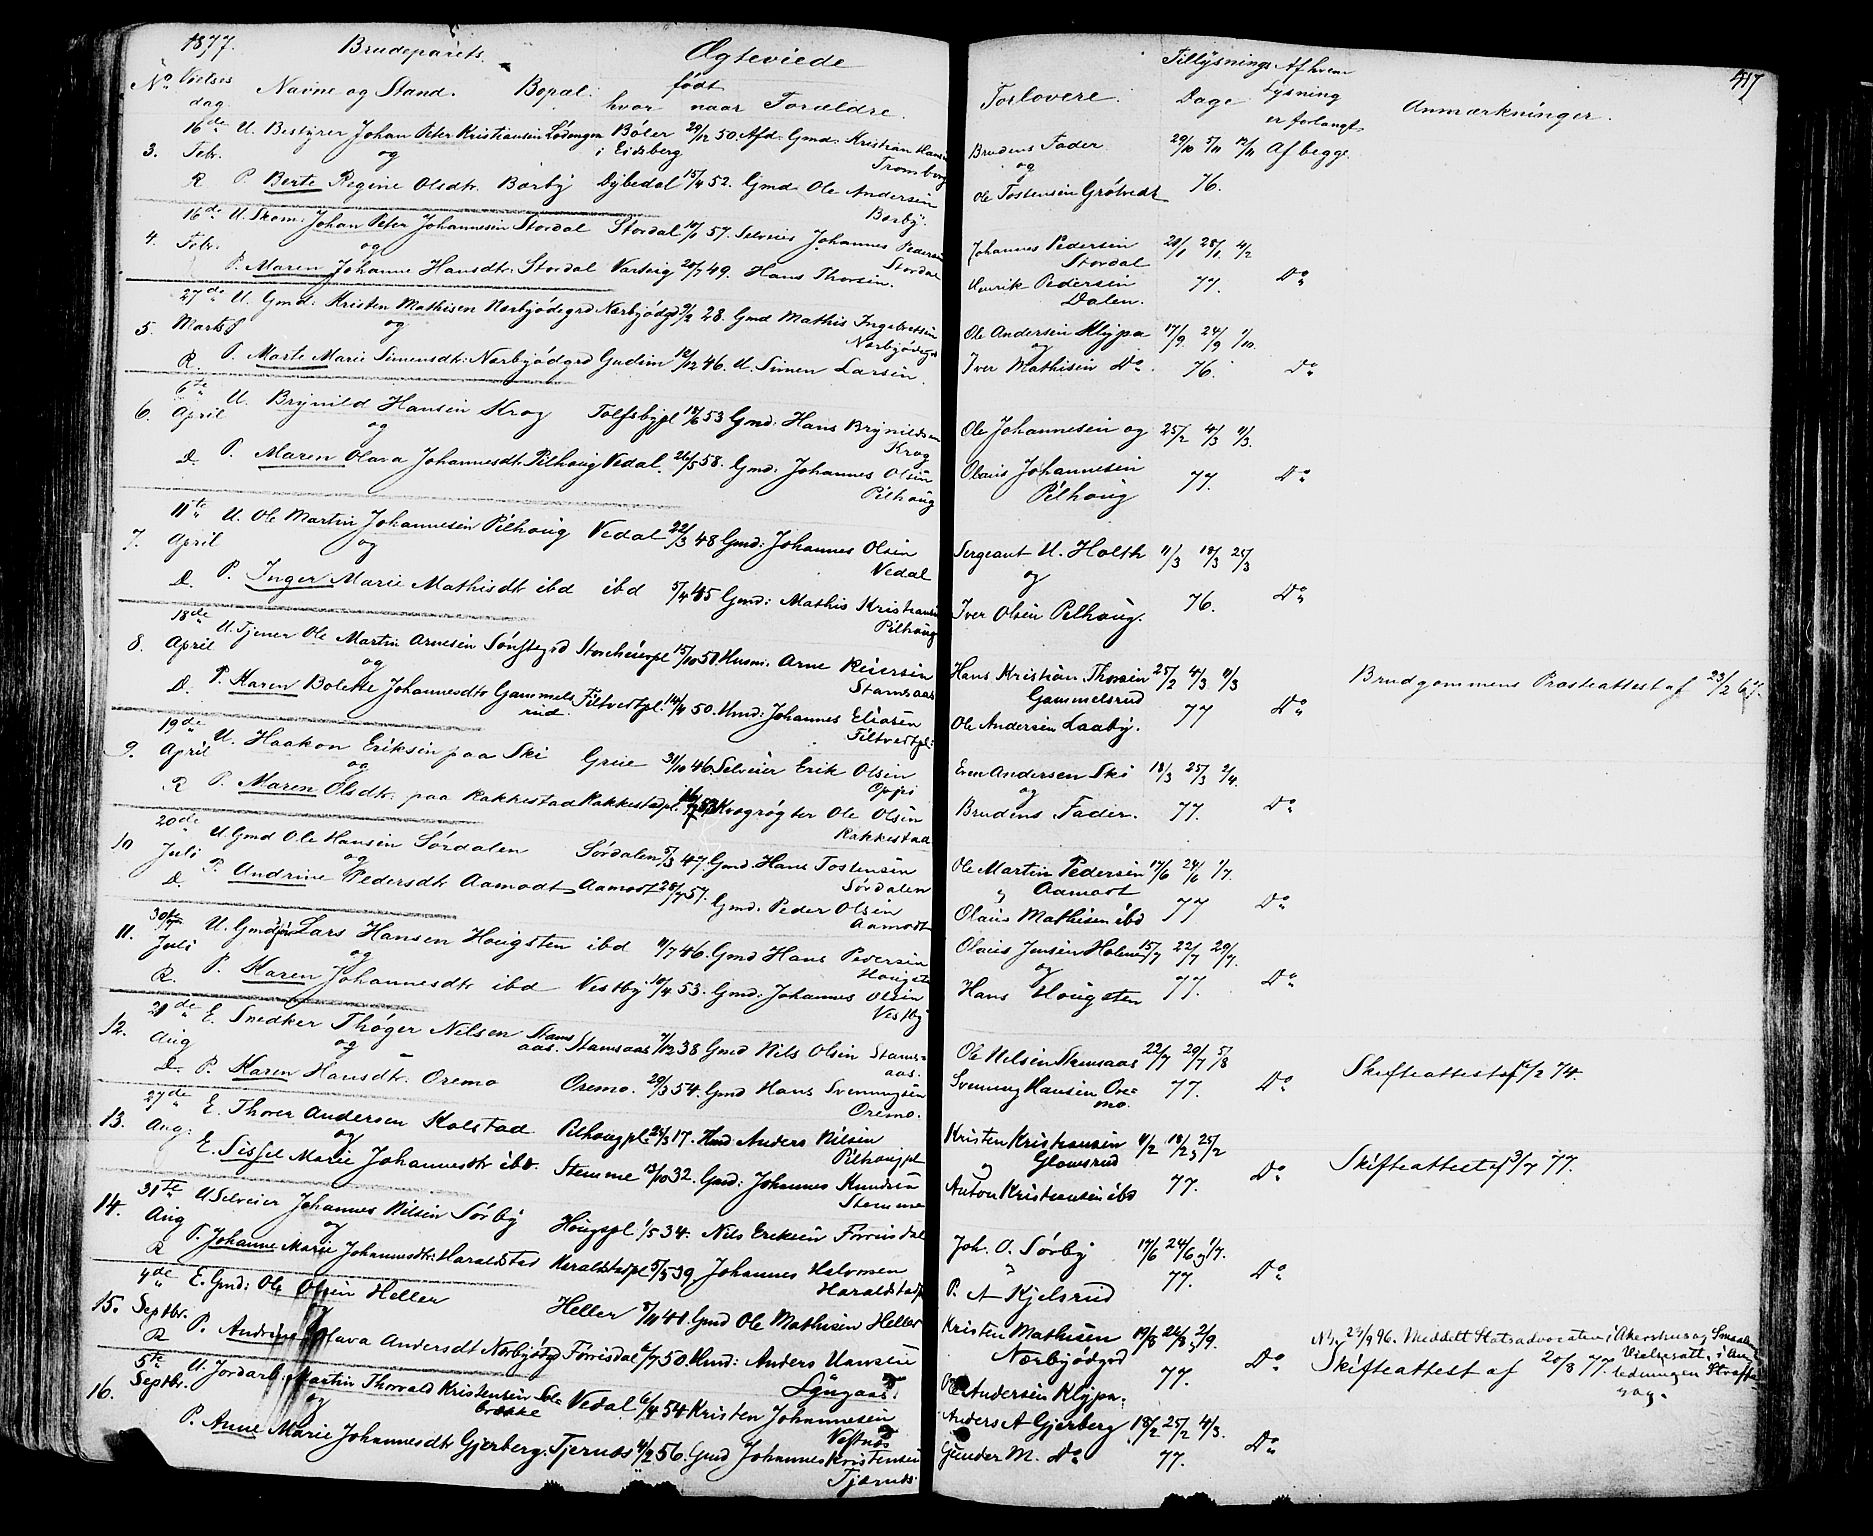 1877. Brudeparets Ægteviede
No. Vielses dag Navne og Stand. Bopæl: født hvor naar Forældre. Forlovere. Tillysnings Dage Af hvem Lysning er forlangt Anmærkninger. 417
16de U. Bestyrer Johan Peter Kristiansen Lödengen Böler i Eidsberg 29/12 50. Afd. Gmd. Kristian Hansen Tromborg Brudens Fader 29/10 5/11 12/11 Af begge.
3. Febr. og og
R P. Berte Regine Olsdtr. Börby Dybedal 15/4 52. Gmd Ole Andersen Börby. Ole Tostensen Grötvedt 76.
16de U. Skom: Johan Peter Johannesen Stordal Stordal 14/1 57. Selveier Johannes Pedersen Stordal Johannes Pedersen Stordal 21/1 28/1 4/2
4. Febr. og
P. Maren Johanne Hansdtr. Stordal Varteig 20/7 49. Hans Thorsen. Henrik Pedersen Dalen. 77. Do
27de U. Gmd: Kristen Mathisen Nærbjödegrd Nærbjödgd 9/2 28. Gmd Mathis Ingebretsen Nærbjödegd Ole Andersen Klypa 17/9 24/9 1/10.
5. Marts og og
R. P. Marte Marie Simensdtr: Nærbjödgrd Gudim 12/12 46. U. Simen Larsen. Iver Mathisen Do. 76. Do
6te U. Brynild Hansen Krog Tolfsbypl 18/6 53 Gmd: Hans Brynildsen Krog Ole Johannesen og 25/2 4/3 11/3.
6. April og
D. P. Maren Olava Johannesdtr. Pilhoug Vedal. 26/5 58. Gmd: Johannes Olsen Pilhoug Olaus Johannesen Pilhoug 77. Do
11te U. Ole Martin Johannesen Pilhoug Vedal 22/3 48 Gmd: Johannes Olsen Vedal Sergeant U. Holth 11/3 18/3 25/3
7. April og og
D. P. Inger Marie Mathisdtr ibd ibd 5/4 45 Gmd: Mathis Kristiansen Pilhoug Iver Olsen Pilhoug. 76. Do
18de U. Tjener Ole Martin Arnesen Sönstegrd Storeheierpl 15/10 50. Husm: Arne Reiersen Stamsaas Hans Kristian Thorsen Gammelsrud 25/2 4/3 11/3 Brudgommens Præsteattest af 23/2 67.
8. April og
D. P. Karen Bolette Johannesdtr Gammelsrud. Filtvedtpl. 14/4 50. Hmd: Johannes Eliasen Filtvedtpl: Ole Andersen Laaby. 77 Do
19de U. Haakon Eriksen paa Ski Greie 31/10 46 Selveier Erik Olsen Even Andersen Ski 18/3 25/3 2/4.
9. April og og
R P. Maren Olsdtr. paa Rakkestad Rakkestadpl. Kvægrögter Ole Olsen Rakkestad Brudens Fader. 77. Do
20de U. Gmd Ole Hansen Sördalen Sördalen 5/3 47. Gmd. Hans Tostensen Sördalen Ole Martin Pedersen Aamodt 17/6 24/6 1/7.
10 Juli og
D. P. Andrine Pedersdtr Aamodt Aamodt 28/7 57. Gmd. Peder Olsen Aamodt Olaus Mathisen ibd 77 Do
30te U. Gmd Lars Hansen Hougsten ibd 11/7 46. Gmd Hans Pedersen Hougsten Olaus Jensen Holene 15/7 22/7 29/7.
11. Juli og og
R. P. Karen Johannesdtr ibd Vestby 10/4 53. Gmd: Johannes Olsen Vestby Hans Hougsten 77. Do
21de E. Snedker Thöger Nilsen Stamsaas. Stamsaas 7/12 38 Gmd Nils Olsen Stamsaas. Ole Nilsen Stamsaas 22/7 29/7 5/8 Skifteattest af 6/2 74.
12. Aug og
D. P. Karen Hansdtr. Oremo Oremo. 29/3 54. Gmd Hans Svenningsen Oremo. Svenning Hansen Oremo. 77. Do
27de E. Thorer Andersen Kolstad Pilhougpl 24/3 17. Hmd Anders Nilsen Pilhougpl Kristen Kristiansen Glomsrud 11/2 18/2 25/2
13. Aug: og og Skifteattest af 3/7 77.
E. Sissel Marie Johannesdtr ibd. Stemme 13/10 32. Gmd: Johannes Knudsen Stemme Anton Kristiansen ibd 77. Do
31te U. Selveier Johannes Nilsen Sörby Hougspl 1/5 34. Nils Eriksen Förrisdal Joh. O. Sörby 17/6 24/6 1/7.
14. Aug og
R P. Johanne Marie Johannesdtr: Haraldstad Haraldstadpl 5/5 39 Johannes Halvorsen Haraldstadpl P. A Kjelsrud 77. Do
4de E. Gmd: Ole Olsen Heller Heller 8/11 41 Gmd Ole Mathisen Heller Kristen Mathisen Nærbjödgrd 19/8 26/8 2/9. 23/9 96. Meddelt Statsadvocaten i Akershus og Smaalenene Vielsesatt. i Anledningen Straffesag.
15. Septbr. og
R P. Andrine Olava Andersdt Nærbjödgd Förrisdal 5/7 50. Hmd: Anders Hansen Lyngaas Ole Andersen Klypa. 77. Do Skifteattest af 20/8 77.
5te U. Jordarb. Martin Thorvald Kristensen Solebrække Vedal 6/4 54 Kristen Johannesen Vestnæs Anders A Gjerberg 18/2 25/2 4/3.
16. Septbr. og
P. Anne Marie Johannesdtr Gjerberg. Tjernæs 11/2 56. Gmd Johannes Kristensen Tjernæs. Gunder M. Do 77. Do